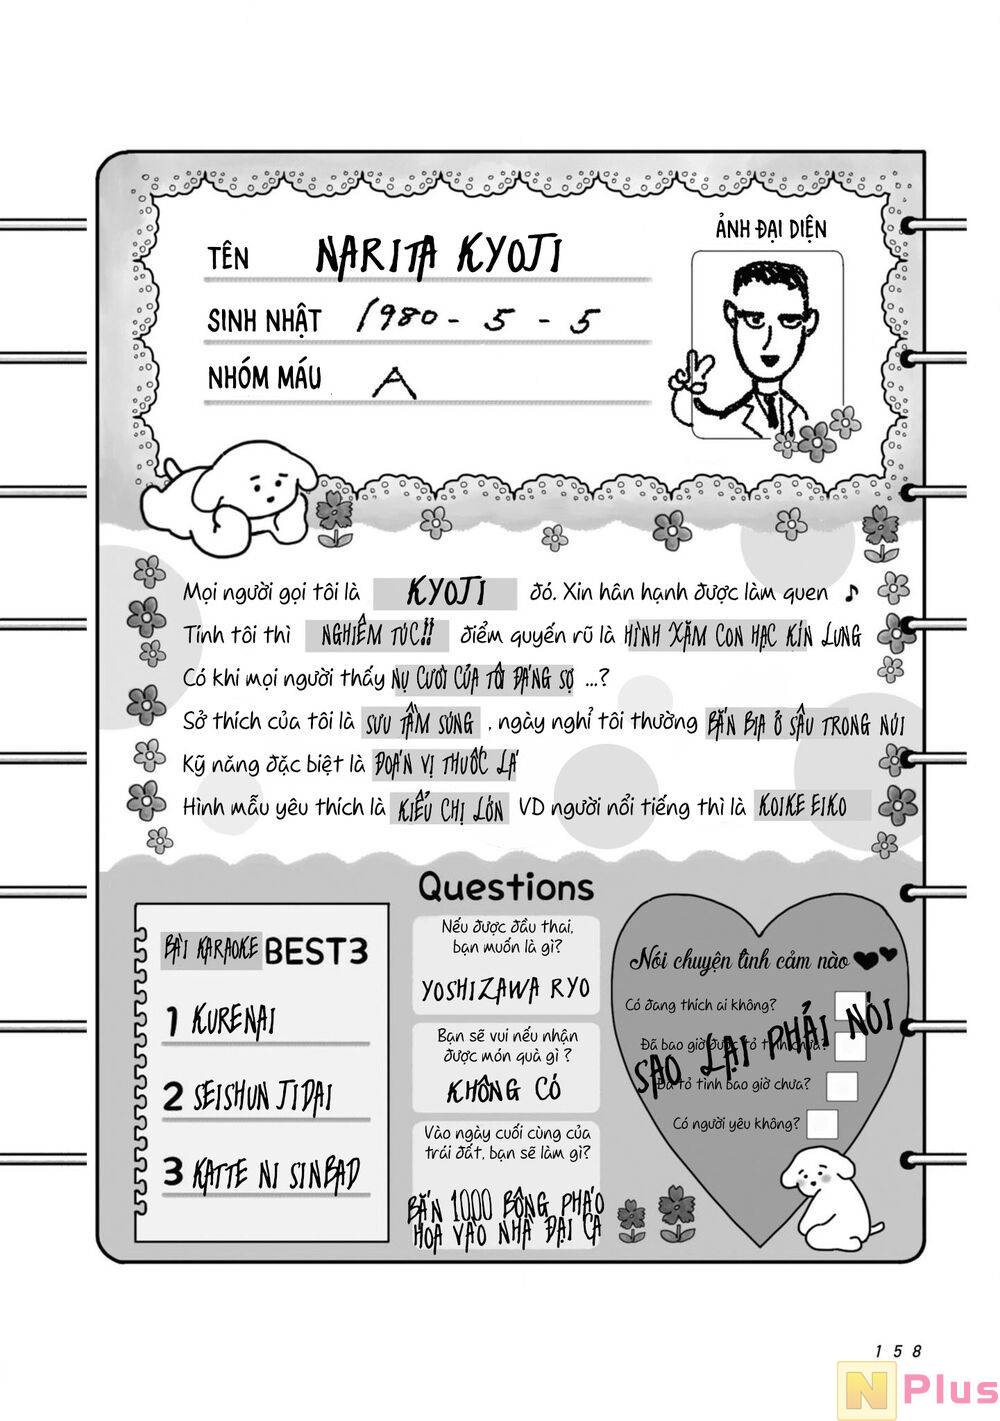 TÊN NARITA KYOJI
SINH NHẬT 1980 - 5 - 5
NHÓM MÁU A
ẢNH ĐẠI DIỆN
Mọi người gọi tôi là KYOJI đó. Xin hân hạnh được làm quen ♪
Tính tôi thì NGHIÊM TÚC!! điểm quyến rũ là HÌNH XĂM CON HẠC KÍN LƯNG
Có khi mọi người thấy NỤ CƯỜI CỦA TÔI ĐÁNG SỢ ...?
Sở thích của tôi là SƯU TẦM SÚNG , ngày nghỉ tôi thường BẮN BIA Ở SÂU TRONG NÚI
Kỹ năng đặc biệt là ĐOÁN VỊ THUỐC LÁ
Hình mẫu yêu thích là KIỂU CHỊ LỚN VD người nổi tiếng thì là KOIKE EIKO
BÀI KARAOKE BEST3
1 KURENAI
2 SEISHUN JIDAI
3 KATTE NI SINBAD
Questions
Nếu được đầu thai,
bạn muốn là gì?
YOSHIZAWA RYO
Bạn sẽ vui nếu nhận
được món quà gì ?
KHÔNG CÓ
Vào ngày cuối cùng của
trái đất, bạn sẽ làm gì?
BẮN 1000 BÔNG PHÁO
HOA VÀO NHÀ ĐẠI CA
Nói chuyện tình cảm nào
Có đang thích ai không?
Đã bao giờ được tỏ tình chưa?
Đã tỏ tình bao giờ chưa?
Có người yêu không?
SAO LẠI PHẢI NÓI
158
N Plus